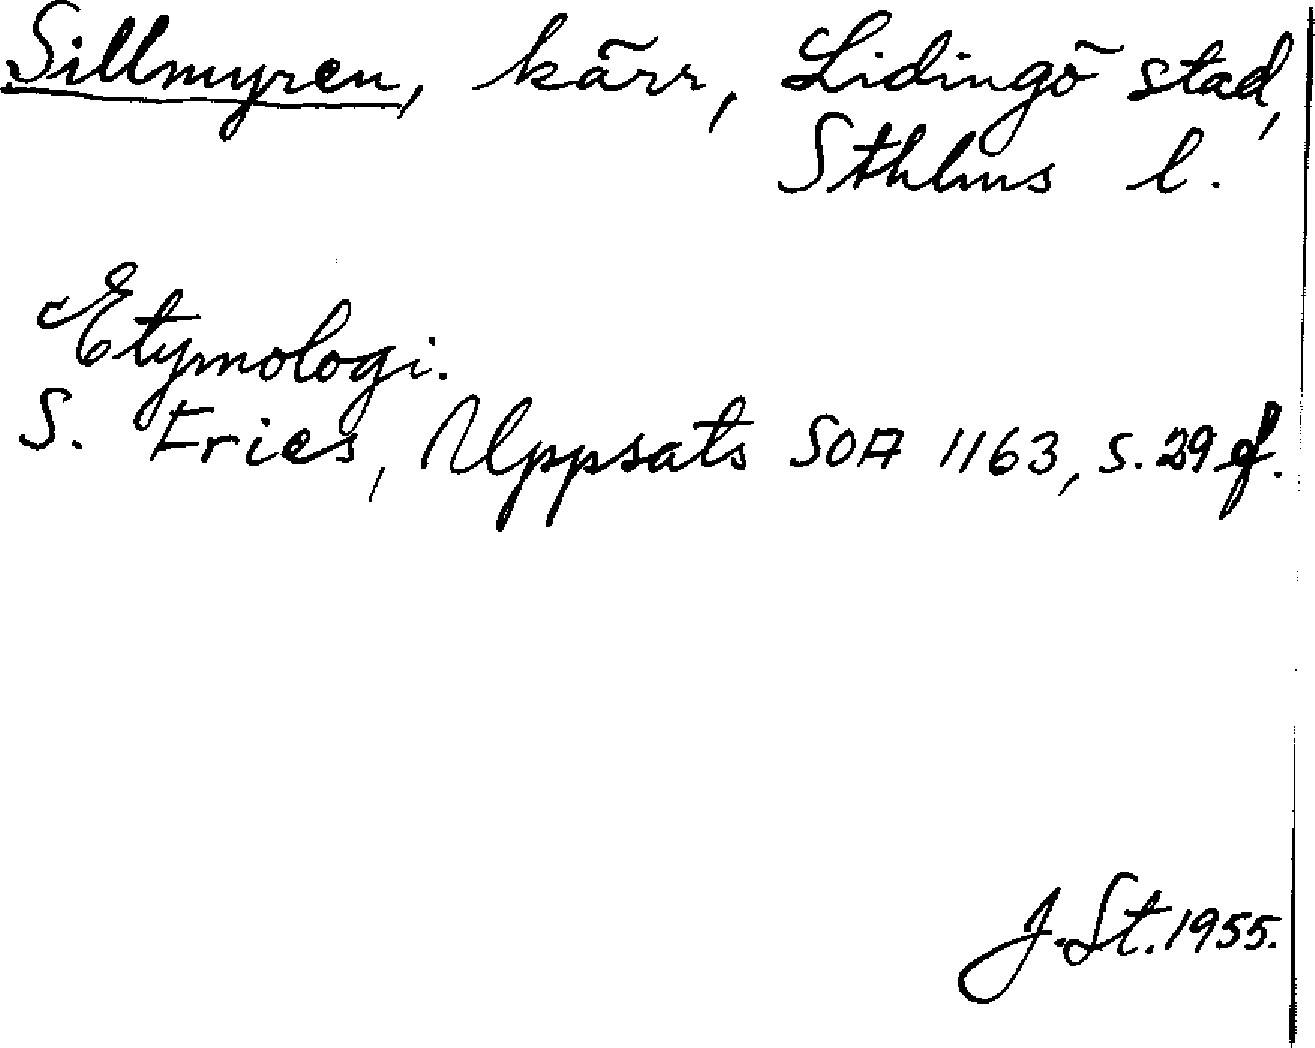 Sillmyren, kärr, Lidingö stad,
Sthlms l.
Etymologi.
S. Fries, Uppsats SOA 1163, s. 29 f.
J. St. 1955.